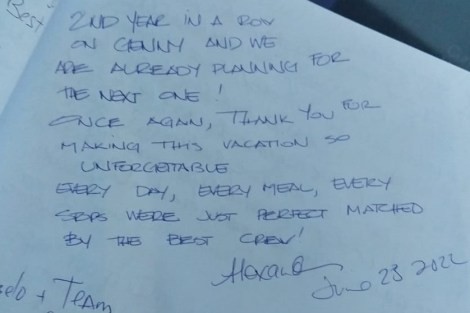 Best
2ND YEAR IN A ROW
ON GENNY AND WE
ARE ALREADY PLANNING FOR
THE NEXT ONE!
ONCE AGAIN, THANK YOU FOR
MAKING THIS VACATION SO
UNFORGETTABLE
EVERY DAY, EVERY MEAL, EVERY
WERE JUST PERFECT MATCHED
BY THE BEST CREW!
June 23 2022
+ TEAM